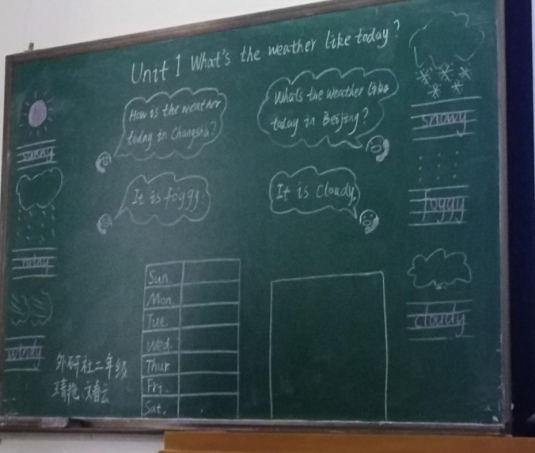 Unit 1 What's the weather like today?
How is the weather
today in Changsha?
What's the weather like
today in Beijing?
It is foggy.
It is cloudy.
sunny
rainy
windy
snowy
foggy
cloudy
Sun.
Mon.
Tue.
Wed.
Thur
Fri.
Sat.
外研社二年级